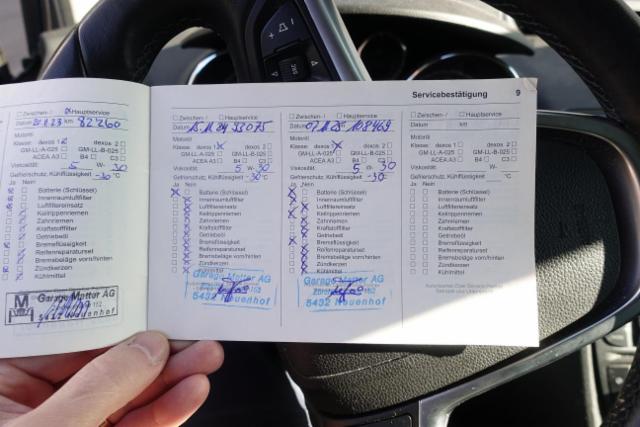 Servicebestätigung 9
Zwischen-/ Hauptservice
Datum km 82260
Motoröl
Klasse: dexos 1 dexos 2
GM-LL-A-025 GM-LL-B-025
ACEA A3 B4 C3
Viskosität 5 W- 30
Gefrierschutz, Kühlflüssigkeit -30 °C
Ja Nein
Batterie (Schlüssel)
Innenraumluftfilter
Luftfiltereinsatz
Keilrippenriemen
Zahnriemen
Kraftstofffilter
Getriebeöl
Bremsflüssigkeit
Reifenreparaturset
Bremsbeläge vorn/hinten
Zündkerzen
Kühlmittel
Garage Mutter AG
5432 Neuenhof
Zwischen-/ Hauptservice
Datum 15.11.24
Motoröl
Klasse: dexos 1 dexos 2
GM-LL-A-025 GM-LL-B-025
ACEA A3 B4 C3
Viskosität 5 W- 30
Gefrierschutz, Kühlflüssigkeit -30 °C
Ja Nein
Batterie (Schlüssel)
Innenraumluftfilter
Luftfiltereinsatz
Keilrippenriemen
Zahnriemen
Kraftstofffilter
Getriebeöl
Bremsflüssigkeit
Reifenreparaturset
Bremsbeläge vorn/hinten
Zündkerzen
Kühlmittel
Garage Mutter AG
5432 Neuenhof
Zwischen-/ Hauptservice
Datum 108469
Motoröl
Klasse: dexos 1 dexos 2
GM-LL-A-025 GM-LL-B-025
ACEA A3 B4 C3
Viskosität 5 W- 30
Gefrierschutz, Kühlflüssigkeit -30 °C
Ja Nein
Batterie (Schlüssel)
Innenraumluftfilter
Luftfiltereinsatz
Keilrippenriemen
Zahnriemen
Kraftstofffilter
Getriebeöl
Bremsflüssigkeit
Reifenreparaturset
Bremsbeläge vorn/hinten
Zündkerzen
Kühlmittel
Garage Mutter AG
5432 Neuenhof
Zwischen-/ Hauptservice
Datum km
Motoröl
Klasse: dexos 1 dexos 2
GM-LL-A-025 GM-LL-B-025
ACEA A3 B4 C3
Viskosität W-
Gefrierschutz, Kühlflüssigkeit °C
Ja Nein
Batterie (Schlüssel)
Innenraumluftfilter
Luftfiltereinsatz
Keilrippenriemen
Zahnriemen
Kraftstofffilter
Getriebeöl
Bremsflüssigkeit
Reifenreparaturset
Bremsbeläge vorn/hinten
Zündkerzen
Kühlmittel